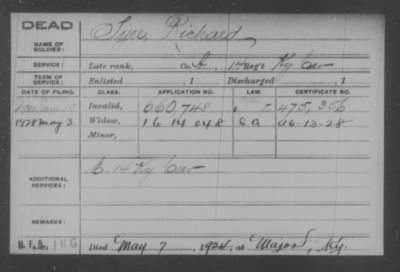 DEAD
NAME OF SOLDIER: Richard
SERVICE: Late rank, Reg't Ky Cav
TERM OF SERVICE: Enlisted , 1 Discharged , 1
DATE OF FILING. CLASS. APPLICATION NO. LAW. CERTIFICATE NO.
Invalid, 660748 475,356
1928 May 3 Widow, 1614048 A6-13-28
Minor,
ADDITIONAL SERVICES: E. 14 Ky Cav
REMARKS:
Died May 7, 1924, at Major, Ky.